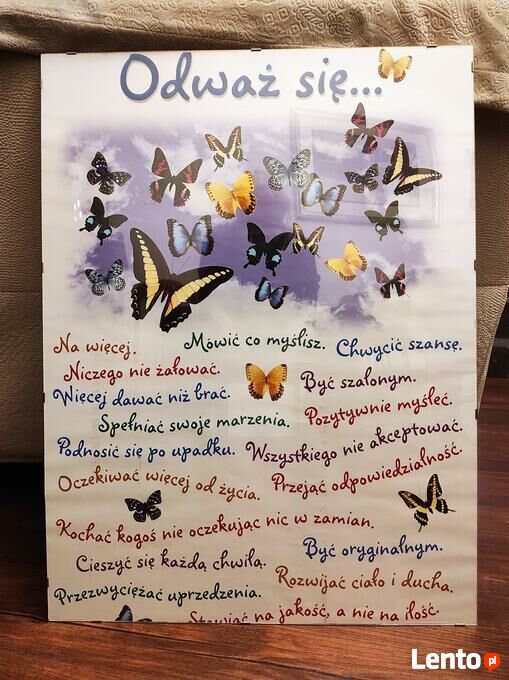 Odważ się...
Na więcej.
Mówić co myślisz.
Chwycić szansę.
Niczego nie żałować.
Być szalonym.
Więcej dawać niż brać.
Pozytywnie myśleć.
Spełniać swoje marzenia.
Podnosić się po upadku.
Wszystkiego nie akceptować.
Oczekiwać więcej od życia.
Przejąć odpowiedzialność.
Kochać kogoś nie oczekując nic w zamian.
Być oryginalnym.
Cieszyć się każdą chwilą.
Rozwijać ciało i ducha.
Przezwyciężać uprzedzenia.
Stawiać na jakość, a nie na ilość.
Lento.pl